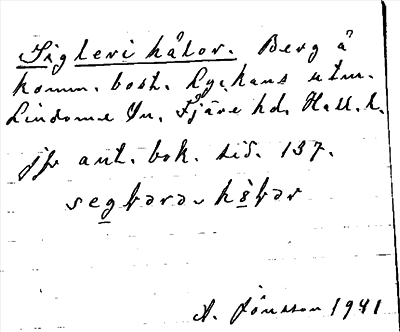 Sigleri hålor. Berg å
komm. bost. Lyckans utm.
Lindome Sn. Fjäre hd. Hall. l.
jfr ant. bok. sid. 137.
A. Jönsson 1941